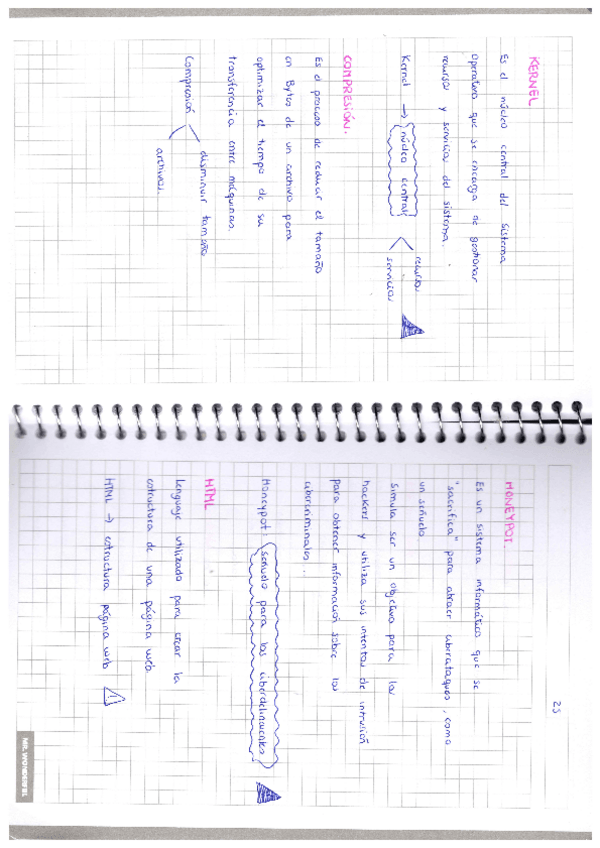 KERNEL
Es el núcleo central del Sistema
Operativo que se encarga de gestionar
recursos y servicios del sistema.
Kernel → núcleo central
recursos
servicios
COMPRESIÓN.
Es el proceso de reducir el tamaño
en Bytes de un archivo para
optimizar el tiempo de su
transferencia entre máquinas.
Compresión
disminuir tamaño
archivos.
25
HONEYPOT.
Es un sistema informático que se
"sacrifica" para atraer ciberataques, como
un señuelo.
Simula ser un objetivo para los
hackers y utiliza sus intentos de intrusión
para obtener información sobre los
cibercriminales..
Honeypot: señuelo para los ciberdelincuentes
HTML
Lenguaje utilizado para crear la
estructura de una página web.
HTML → estructura página web !
MR. WONDERFUL